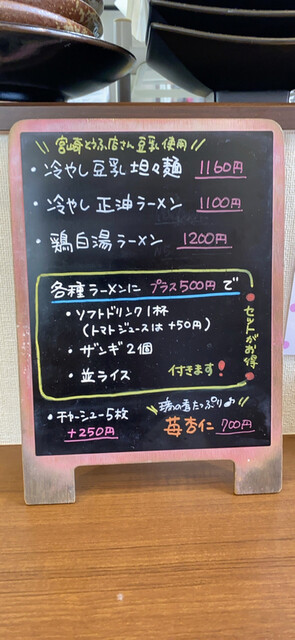 宮崎とうふ店さん豆乳使用
・冷やし豆乳坦々麺 1160円
・冷やし正油ラーメン 1100円
・鶏白湯ラーメン 1200円
各種ラーメンにプラス500円で
・ソフトドリンク1杯
(トマトジュースは+50円)
・ザンギ2個
・並ライス
付きます!
セットがお得
・チャーシュー5枚
+250円
たっぷり♪
苺杏仁 700円